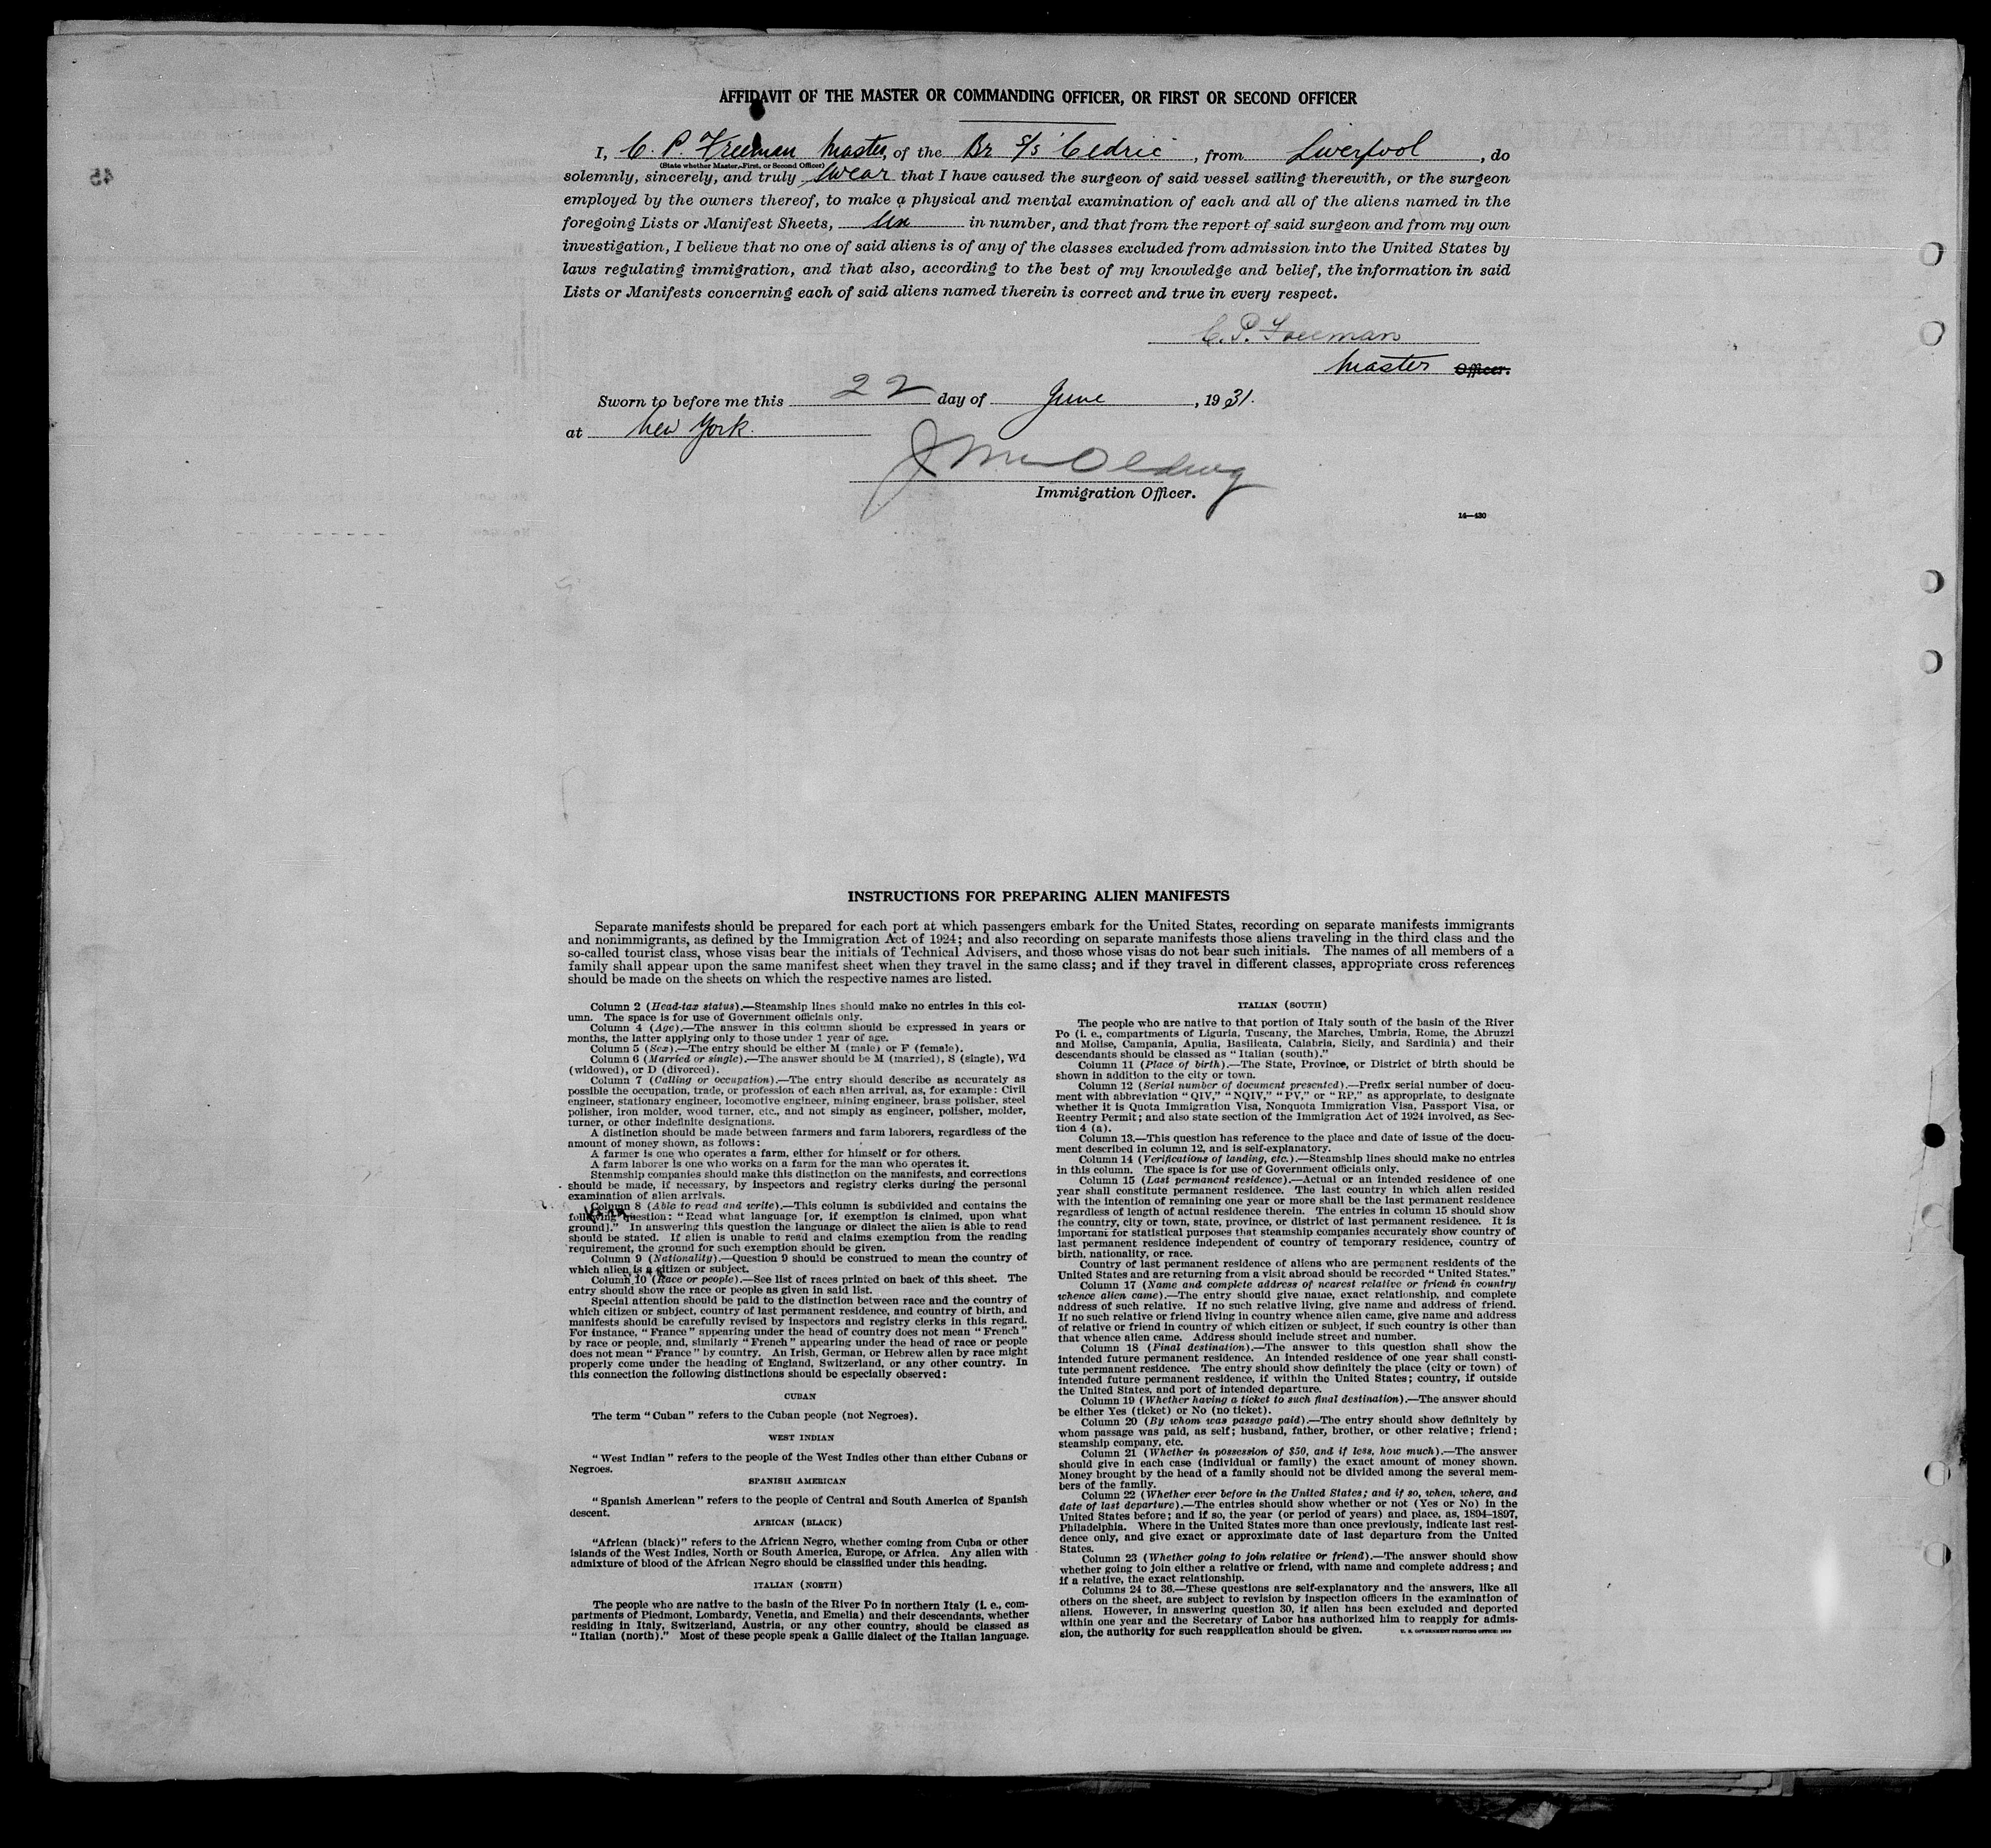 AFFIDAVIT OF THE MASTER OR COMMANDING OFFICER, OR FIRST OR SECOND OFFICER
I, C. P. Freeman Master, of the Br S/S Cedric, from Liverpool, do
(State whether Master, First, or Second Officer)
solemnly, sincerely, and truly swear that I have caused the surgeon of said vessel sailing therewith, or the surgeon
employed by the owners thereof, to make a physical and mental examination of each and all of the aliens named in the
foregoing Lists or Manifest Sheets, in number, and that from the report of said surgeon and from my own
investigation, I believe that no one of said aliens is of any of the classes excluded from admission into the United States by
laws regulating immigration, and that also, according to the best of my knowledge and belief, the information in said
Lists or Manifests concerning each of said aliens named therein is correct and true in every respect.
C. P. Freeman
Master Officer.
Sworn to before me this 22 day of June, 1931.
at New York.
Immigration Officer.
14—430
45
INSTRUCTIONS FOR PREPARING ALIEN MANIFESTS
Separate manifests should be prepared for each port at which passengers embark for the United States, recording on separate manifests immigrants
and nonimmigrants, as defined by the Immigration Act of 1924; and also recording on separate manifests those aliens traveling in the third class and the
so-called tourist class, whose visas bear the initials of Technical Advisers, and those whose visas do not bear such initials. The names of all members of a
family shall appear upon the same manifest sheet when they travel in the same class; and if they travel in different classes, appropriate cross references
should be made on the sheets on which the respective names are listed.
Column 2 (Head-tax status).—Steamship lines should make no entries in this col-
umn. The space is for use of Government officials only.
Column 4 (Age).—The answer in this column should be expressed in years or
months, the latter applying only to those under 1 year of age.
Column 5 (Sex).—The entry should be either M (male) or F (female).
Column 6 (Married or single).—The answer should be M (married), S (single), Wd
(widowed), or D (divorced).
Column 7 (Calling or occupation).—The entry should describe as accurately as
possible the occupation, trade, or profession of each alien arrival, as, for example: Civil
engineer, stationary engineer, locomotive engineer, mining engineer, brass polisher, steel
polisher, iron molder, wood turner, etc., and not simply as engineer, polisher, molder,
turner, or other indefinite designations.
A distinction should be made between farmers and farm laborers, regardless of the
amount of money shown, as follows:
A farmer is one who operates a farm, either for himself or for others.
A farm laborer is one who works on a farm for the man who operates it.
Steamship companies should make this distinction on the manifests, and corrections
should be made, if necessary, by inspectors and registry clerks during the personal
examination of alien arrivals.
Column 8 (Able to read and write).—This column is subdivided and contains the
following question: "Read what language [or, if exemption is claimed, upon what
ground]." In answering this question the language or dialect the alien is able to read
should be stated. If alien is unable to read and claims exemption from the reading
requirement, the ground for such exemption should be given.
Column 9 (Nationality).—Question 9 should be construed to mean the country of
which alien is a citizen or subject.
Column 10 (Race or people).—See list of races printed on back of this sheet. The
entry should show the race or people as given in said list.
Special attention should be paid to the distinction between race and the country of
which citizen or subject, country of last permanent residence, and country of birth, and
manifests should be carefully revised by inspectors and registry clerks in this regard.
For instance, "France" appearing under the head of country does not mean "French"
by race or people, and, similarly "French" appearing under the head of race or people
does not mean "France" by country. An Irish, German, or Hebrew alien by race might
properly come under the heading of England, Switzerland, or any other country. In
this connection the following distinctions should be especially observed:
CUBAN
The term "Cuban" refers to the Cuban people (not Negroes).
WEST INDIAN
"West Indian" refers to the people of the West Indies other than either Cubans or
Negroes.
SPANISH AMERICAN
"Spanish American" refers to the people of Central and South America of Spanish
descent.
AFRICAN (BLACK)
"African (black)" refers to the African Negro, whether coming from Cuba or other
islands of the West Indies, North or South America, Europe, or Africa. Any alien with
admixture of blood of the African Negro should be classified under this heading.
ITALIAN (NORTH)
The people who are native to the basin of the River Po in northern Italy (i. e., com-
partments of Piedmont, Lombardy, Venetia, and Emelia) and their descendants, whether
residing in Italy, Switzerland, Austria, or any other country, should be classed as
"Italian (north)." Most of these people speak a Gallic dialect of the Italian language.
ITALIAN (SOUTH)
The people who are native to that portion of Italy south of the basin of the River
Po (i. e., compartments of Liguria, Tuscany, the Marches, Umbria, Rome, the Abruzzi
and Molise, Campania, Apulia, Basilicata, Calabria, Sicily, and Sardinia) and their
descendants should be classed as "Italian (south)."
Column 11 (Place of birth).—The State, Province, or District of birth should be
shown in addition to the city or town.
Column 12 (Serial number of document presented).—Prefix serial number of docu-
ment with abbreviation "QIV," "NQIV," "PV," or "RP," as appropriate, to designate
whether it is Quota Immigration Visa, Nonquota Immigration Visa, Passport Visa, or
Reentry Permit; and also state section of the Immigration Act of 1924 involved, as Sec-
tion 4 (a).
Column 13.—This question has reference to the place and date of issue of the docu-
ment described in column 12, and is self-explanatory.
Column 14 (Verifications of landing, etc.).—Steamship lines should make no entries
in this column. The space is for use of Government officials only.
Column 15 (Last permanent residence).—Actual or an intended residence of one
year shall constitute permanent residence. The last country in which alien resided
with the intention of remaining one year or more shall be the last permanent residence
regardless of length of actual residence therein. The entries in column 15 should show
the country, city or town, state, province, or district of last permanent residence. It is
important for statistical purposes that steamship companies accurately show country of
last permanent residence independent of country of temporary residence, country of
birth, nationality, or race.
Country of last permanent residence of aliens who are permanent residents of the
United States and are returning from a visit abroad should be recorded "United States."
Column 17 (Name and complete address of nearest relative or friend in country
whence alien came).—The entry should give name, exact relationship, and complete
address of such relative. If no such relative living, give name and address of friend.
If no such relative or friend living in country whence alien came, give name and address
of relative or friend in country of which citizen or subject, if such country is other than
that whence alien came. Address should include street and number.
Column 18 (Final destination).—The answer to this question shall show the
intended future permanent residence. An intended residence of one year shall consti-
tute permanent residence. The entry should show definitely the place (city or town) of
intended future permanent residence, if within the United States; country, if outside
the United States, and port of intended departure.
Column 19 (Whether having a ticket to such final destination).—The answer should
be either Yes (ticket) or No (no ticket).
Column 20 (By whom was passage paid).—The entry should show definitely by
whom passage was paid, as self; husband, father, brother, or other relative; friend;
steamship company, etc.
Column 21 (Whether in possession of $50, and if less, how much).—The answer
should give in each case (individual or family) the exact amount of money shown.
Money brought by the head of a family should not be divided among the several mem-
bers of the family.
Column 22 (Whether ever before in the United States; and if so, when, where, and
date of last departure).—The entries should show whether or not (Yes or No) in the
United States before; and if so, the year (or period of years) and place, as, 1894–1897,
Philadelphia. Where in the United States more than once previously, indicate last resi-
dence only, and give exact or approximate date of last departure from the United
States.
Column 23 (Whether going to join relative or friend).—The answer should show
whether going to join either a relative or friend, with name and complete address; and
if a relative, the exact relationship.
Columns 24 to 36.—These questions are self-explanatory and the answers, like all
others on the sheet, are subject to revision by inspection officers in the examination of
aliens. However, in answering question 30, if alien has been excluded and deported
within one year and the Secretary of Labor has authorized him to reapply for admis-
sion, the authority for such reapplication should be given.
U. S. GOVERNMENT PRINTING OFFICE: